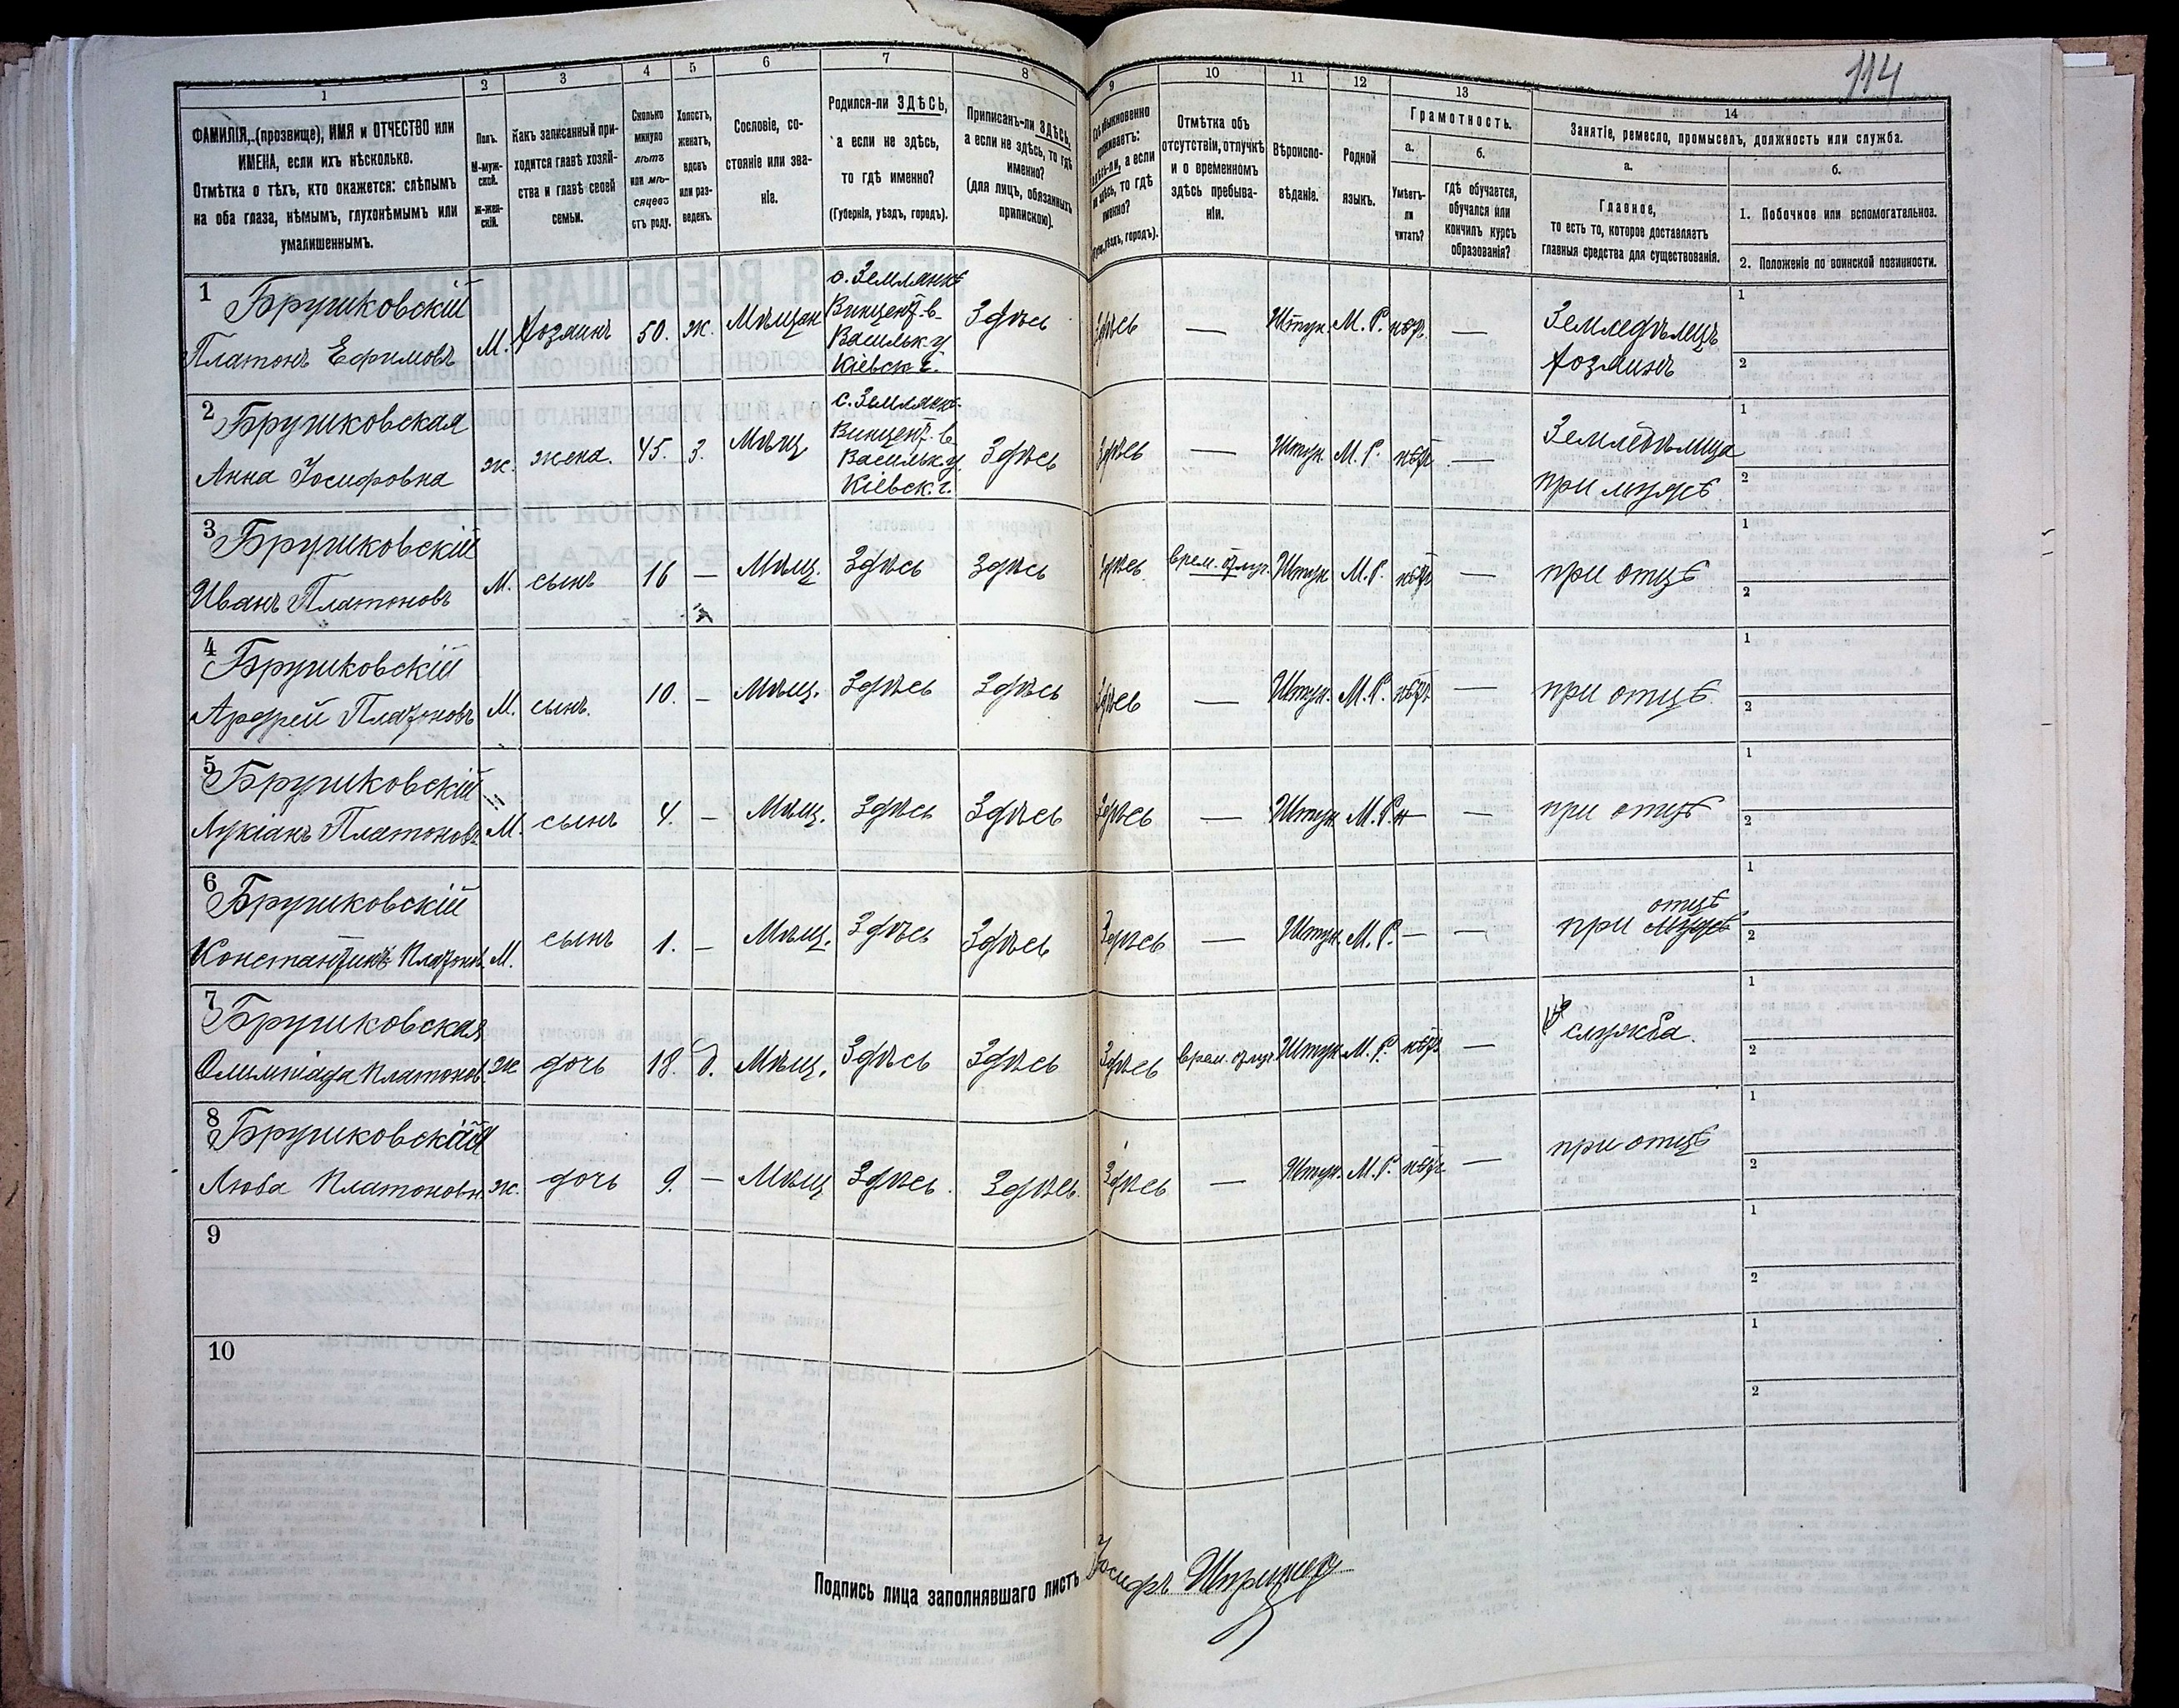 114
1
2
3
4
5
6
7
8
9
10
11
12
13
14
ФАМИЛІЯ, (прозвище), ИМЯ и ОТЧЕСТВО или
ИМЕНА, если ихъ нѣсколько.
Отмѣтка о тѣхъ, кто окажется: слѣпымъ
на оба глаза, нѣмымъ, глухонѣмымъ или
умалишеннымъ.
Полъ.
М-муж-
ской.
Ж-жен-
скій.
Какъ записанный при-
ходится главѣ хозяй-
ства и главѣ своей
семьи.
Сколько
минуло
лѣтъ
или мѣ-
сяцевъ
отъ роду.
Холостъ,
женатъ,
вдовъ
или раз-
веденъ.
Сословіе, со-
стояніе или зва-
ніе.
Родился-ли ЗДѢСЬ,
а если не здѣсь,
то гдѣ именно?
(Губернія, уѣздъ, городъ).
Приписанъ-ли ЗДѢСЬ,
а если не здѣсь, то гдѣ
именно?
(для лицъ, обязанныхъ
припискою).
обыкновенно
проживаетъ:
здѣсь-ли, а если
не здѣсь, то гдѣ
именно?
уѣздъ, городъ).
Отмѣтка объ
отсутствіи, отлучкѣ
и о временномъ
здѣсь пребыва-
ніи.
Вѣроиспо-
вѣданіе.
Родной
языкъ.
Грамотность.
а.
Умѣетъ-
ли
читать?
б.
гдѣ обучается,
обучался или
кончилъ курсъ
образованія?
Занятіе, ремесло, промыселъ, должность или служба.
а.
Главное,
то есть то, которое доставляетъ
главныя средства для существованія.
б.
1. Побочное или вспомогательное.
2. Положеніе по воинской повинности.
1 Брушковскій
Платонъ Ефимовъ М. Хозяинъ 50. ж. Мѣщан
с. Землянкѣ
Винцент. в.
Васильк. у
Кіевск. г.
Здѣсь Здѣсь — Штун. М. Р. нѣтъ —
Земледѣлецъ
хозяинъ
1
2
2 Брушковская
Анна Іосифовна ж. жена. 45. З. Мѣщ
с. Землянкѣ
Винцент. в.
Васильк. у.
Кіевск. г.
Здѣсь Здѣсь — Штун. М. Р. нѣтъ —
Земледѣлица
при мужѣ
1
2
3 Брушковскій
Иванъ Платоновъ М. сынъ 16 — Мѣщ. Здѣсь Здѣсь Здѣсь врем. отлуч. Штун М. Р. нѣтъ — при отцѣ
1
2
4 Брушковскій
Андрей Платоновъ М. сынъ. 10. — Мѣщ. Здѣсь Здѣсь Здѣсь — Штун. М. Р. нѣтъ — при отцѣ.
1
2
5 Брушковскій
Лукіанъ Платоновъ М. сынъ 4. — Мѣщ. Здѣсь Здѣсь Здѣсь — Штун. М. Р. — — при отцѣ
1
2
6 Брушковскій
Константинъ Платонов. М. сынъ 1. — Мѣщ. Здѣсь Здѣсь Здѣсь — Штун. М. Р. — — при мужѣ отцѣ
1
2
7 Брушковская
Олимпіада Платонов. ж дочь 18. д. Мѣщ. Здѣсь Здѣсь Здѣсь врем. отлуч. Штун М. Р. нѣтъ — служба.
1
2
8 Брушковская
Люба Платоновн. ж. дочь 9. — Мѣщ Здѣсь. Здѣсь. Здѣсь — Штун. М. Р. нѣтъ — при отцѣ
1
2
9
1
2
10
1
2
Подпись лица заполнявшаго листъ Іосифъ